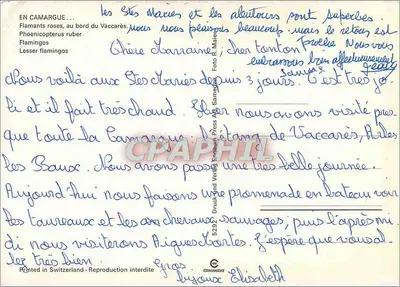 EN CAMARGUE...
Flamants roses, au bord du Vaccarès
Phoenicopterus ruber
Flamingos
Lesser flamingos
les Stes Maries et les alentours sont superbes.
nous nous plaisons beaucoup. mais le retour est
proche Nous vous
embrassons bien affectueusement
Chère Marraine, cher tonton
Nous voilà aux Stes Maries depuis 3 jours. C'est très jo
li et il fait très chaud. Hier nous avons visité pres
que toute la Camargue, l'étang de Vaccarès, Arles
les Baux. Nous avons passé une très belle journée.
Aujourd'hui nous faisons une promenade en bateau voir
les taureaux et les chevaux sauvages, puis l'après mi
di nous visiterons Aigues Mortes. J'espère que vous al
lez très bien.
Gros
bijoux Elisabeth
Printed in Switzerland - Reproduction interdite
CPARAMA.COM